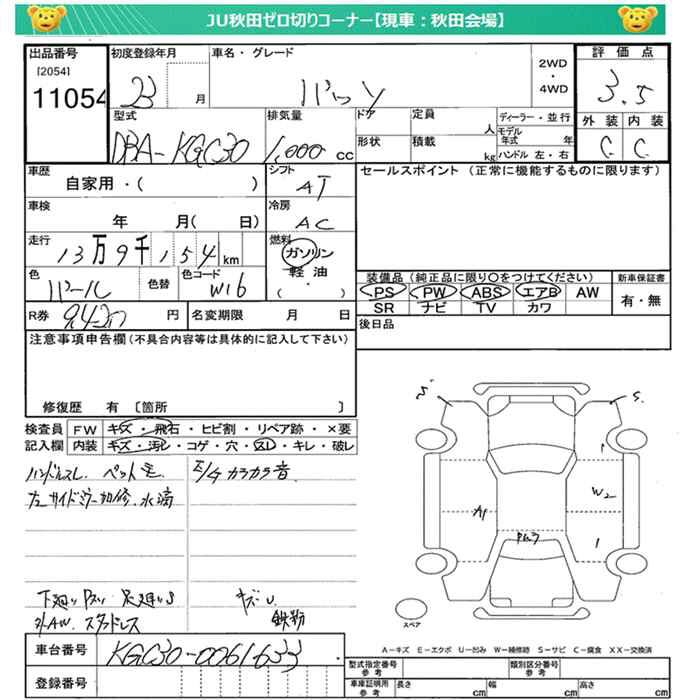 JU秋田ゼロ切りコーナー【現車：秋田会場】
出品番号 初度登録年月 車名・グレード 2WD・4WD 評価点
[2054]
11054 23 月 パッソ 3.5
型式 排気量 ドア 定員 人 ディーラー・並行 外装 内装
DBA-KGC30 1,000 cc 形状 積載 kg モデル年式 年 ハンドル 左・右 C C
車歴 シフト セールスポイント（正常に機能するものに限ります）
自家用・( ) AT
車検 冷房
年 月( 日) AC
走行 燃料
13万9千154km ガソリン
軽油
( ・ )
色 色替 色コード 装備品（純正品に限り○をつけてください） 新車保証書
パール W16 PS PW ABS エアB AW 有・無
SR ナビ TV カワ
R券 9,420 円 名変期限 月 日 後日品
注意事項申告欄（不具合内容等は具体的に記入して下さい）
修復歴 有 〔箇所 〕
検査員 FW キズ・飛石・ヒビ割・リペア跡・×要
記入欄 内装 キズ・汚レ・コゲ・穴・スレ・キレ・破レ
ハンドルスレ ペット毛 E/Gカラカラ音
左サイドミラー加修、水滴
下廻り
外AW、スタッドレス 鉄粉
S S
A1 W2
1
1
スペア
A－キズ E－エクボ U－凹み W－補修跡 S－サビ C－腐食 XX－交換済
車台番号 KGC30-0061633 型式指定番号 参考 類別区分番号 参考
登録番号 車庫証明用 参考 長さ cm 幅 cm 高さ cm